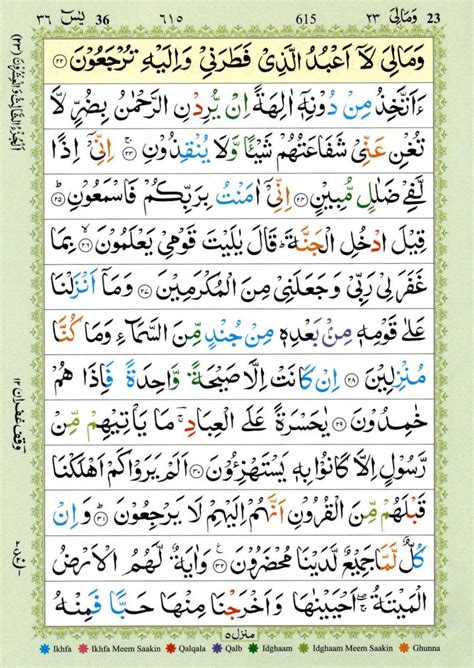 23 وَمَالِیَ ٢٣ 615 ٦١٥ 36 یٰسٓ ٣٦
وَمَالِیَ لَاۤ اَعْبُدُ الَّذِیْ فَطَرَنِیْ وَاِلَیْهِ تُرْجَعُوْنَ ٢٢
ءَاَتَّخِذُ مِنْ دُوْنِهٖۤ اٰلِهَةً اِنْ یُّرِدْنِ الرَّحْمٰنُ بِضُرٍّ لَّا
تُغْنِ عَنِّیْ شَفَاعَتُهُمْ شَیْـًٔا وَّلَا یُنْقِذُوْنِ ٢٣ اِنِّیْۤ اِذًا
لَّفِیْ ضَلٰلٍ مُّبِیْنٍ ٢٤ اِنِّیْۤ اٰمَنْتُ بِرَبِّكُمْ فَاسْمَعُوْنِ ٢٥
قِیْلَ ادْخُلِ الْجَنَّةَ ؕ قَالَ یٰلَیْتَ قَوْمِیْ یَعْلَمُوْنَ ٢٦ بِمَا
غَفَرَ لِیْ رَبِّیْ وَجَعَلَنِیْ مِنَ الْمُكْرَمِیْنَ ٢٧ وَمَاۤ اَنْزَلْنَا
عَلٰی قَوْمِهٖ مِنْۢ بَعْدِهٖ مِنْ جُنْدٍ مِّنَ السَّمَآءِ وَمَا كُنَّا
مُنْزِلِیْنَ ٢٨ اِنْ كَانَتْ اِلَّا صَیْحَةً وَّاحِدَةً فَاِذَا هُمْ
خٰمِدُوْنَ ٢٩ یٰحَسْرَةً عَلَی الْعِبَادِ ۚ مَا یَاْتِیْهِمْ مِّنْ
رَّسُوْلٍ اِلَّا كَانُوْا بِهٖ یَسْتَهْزِءُوْنَ ٣٠ اَلَمْ یَرَوْا كَمْ اَهْلَكْنَا
قَبْلَهُمْ مِّنَ الْقُرُوْنِ اَنَّهُمْ اِلَیْهِمْ لَا یَرْجِعُوْنَ ٣١ وَاِنْ
كُلٌّ لَّمَّا جَمِیْعٌ لَّدَیْنَا مُحْضَرُوْنَ ٣٢ وَاٰیَةٌ لَّهُمُ الْاَرْضُ
الْمَیْتَةُ ۖۚ اَحْیَیْنٰهَا وَاَخْرَجْنَا مِنْهَا حَبًّا فَمِنْهُ
اَلْجُزْءُ الثَّالِثُ وَالْعِشْرُوْنَ (٢٣)
وقف غفران ١٢
منزل ٥
Ikhfa Ikhfa Meem Saakin Qalqala Qalb Idghaam Idghaam Meem Saakin Ghunna